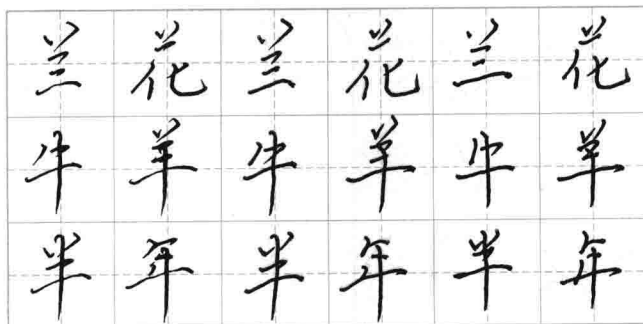 兰花兰花兰花
牛羊牛羊牛羊
半年半年半年